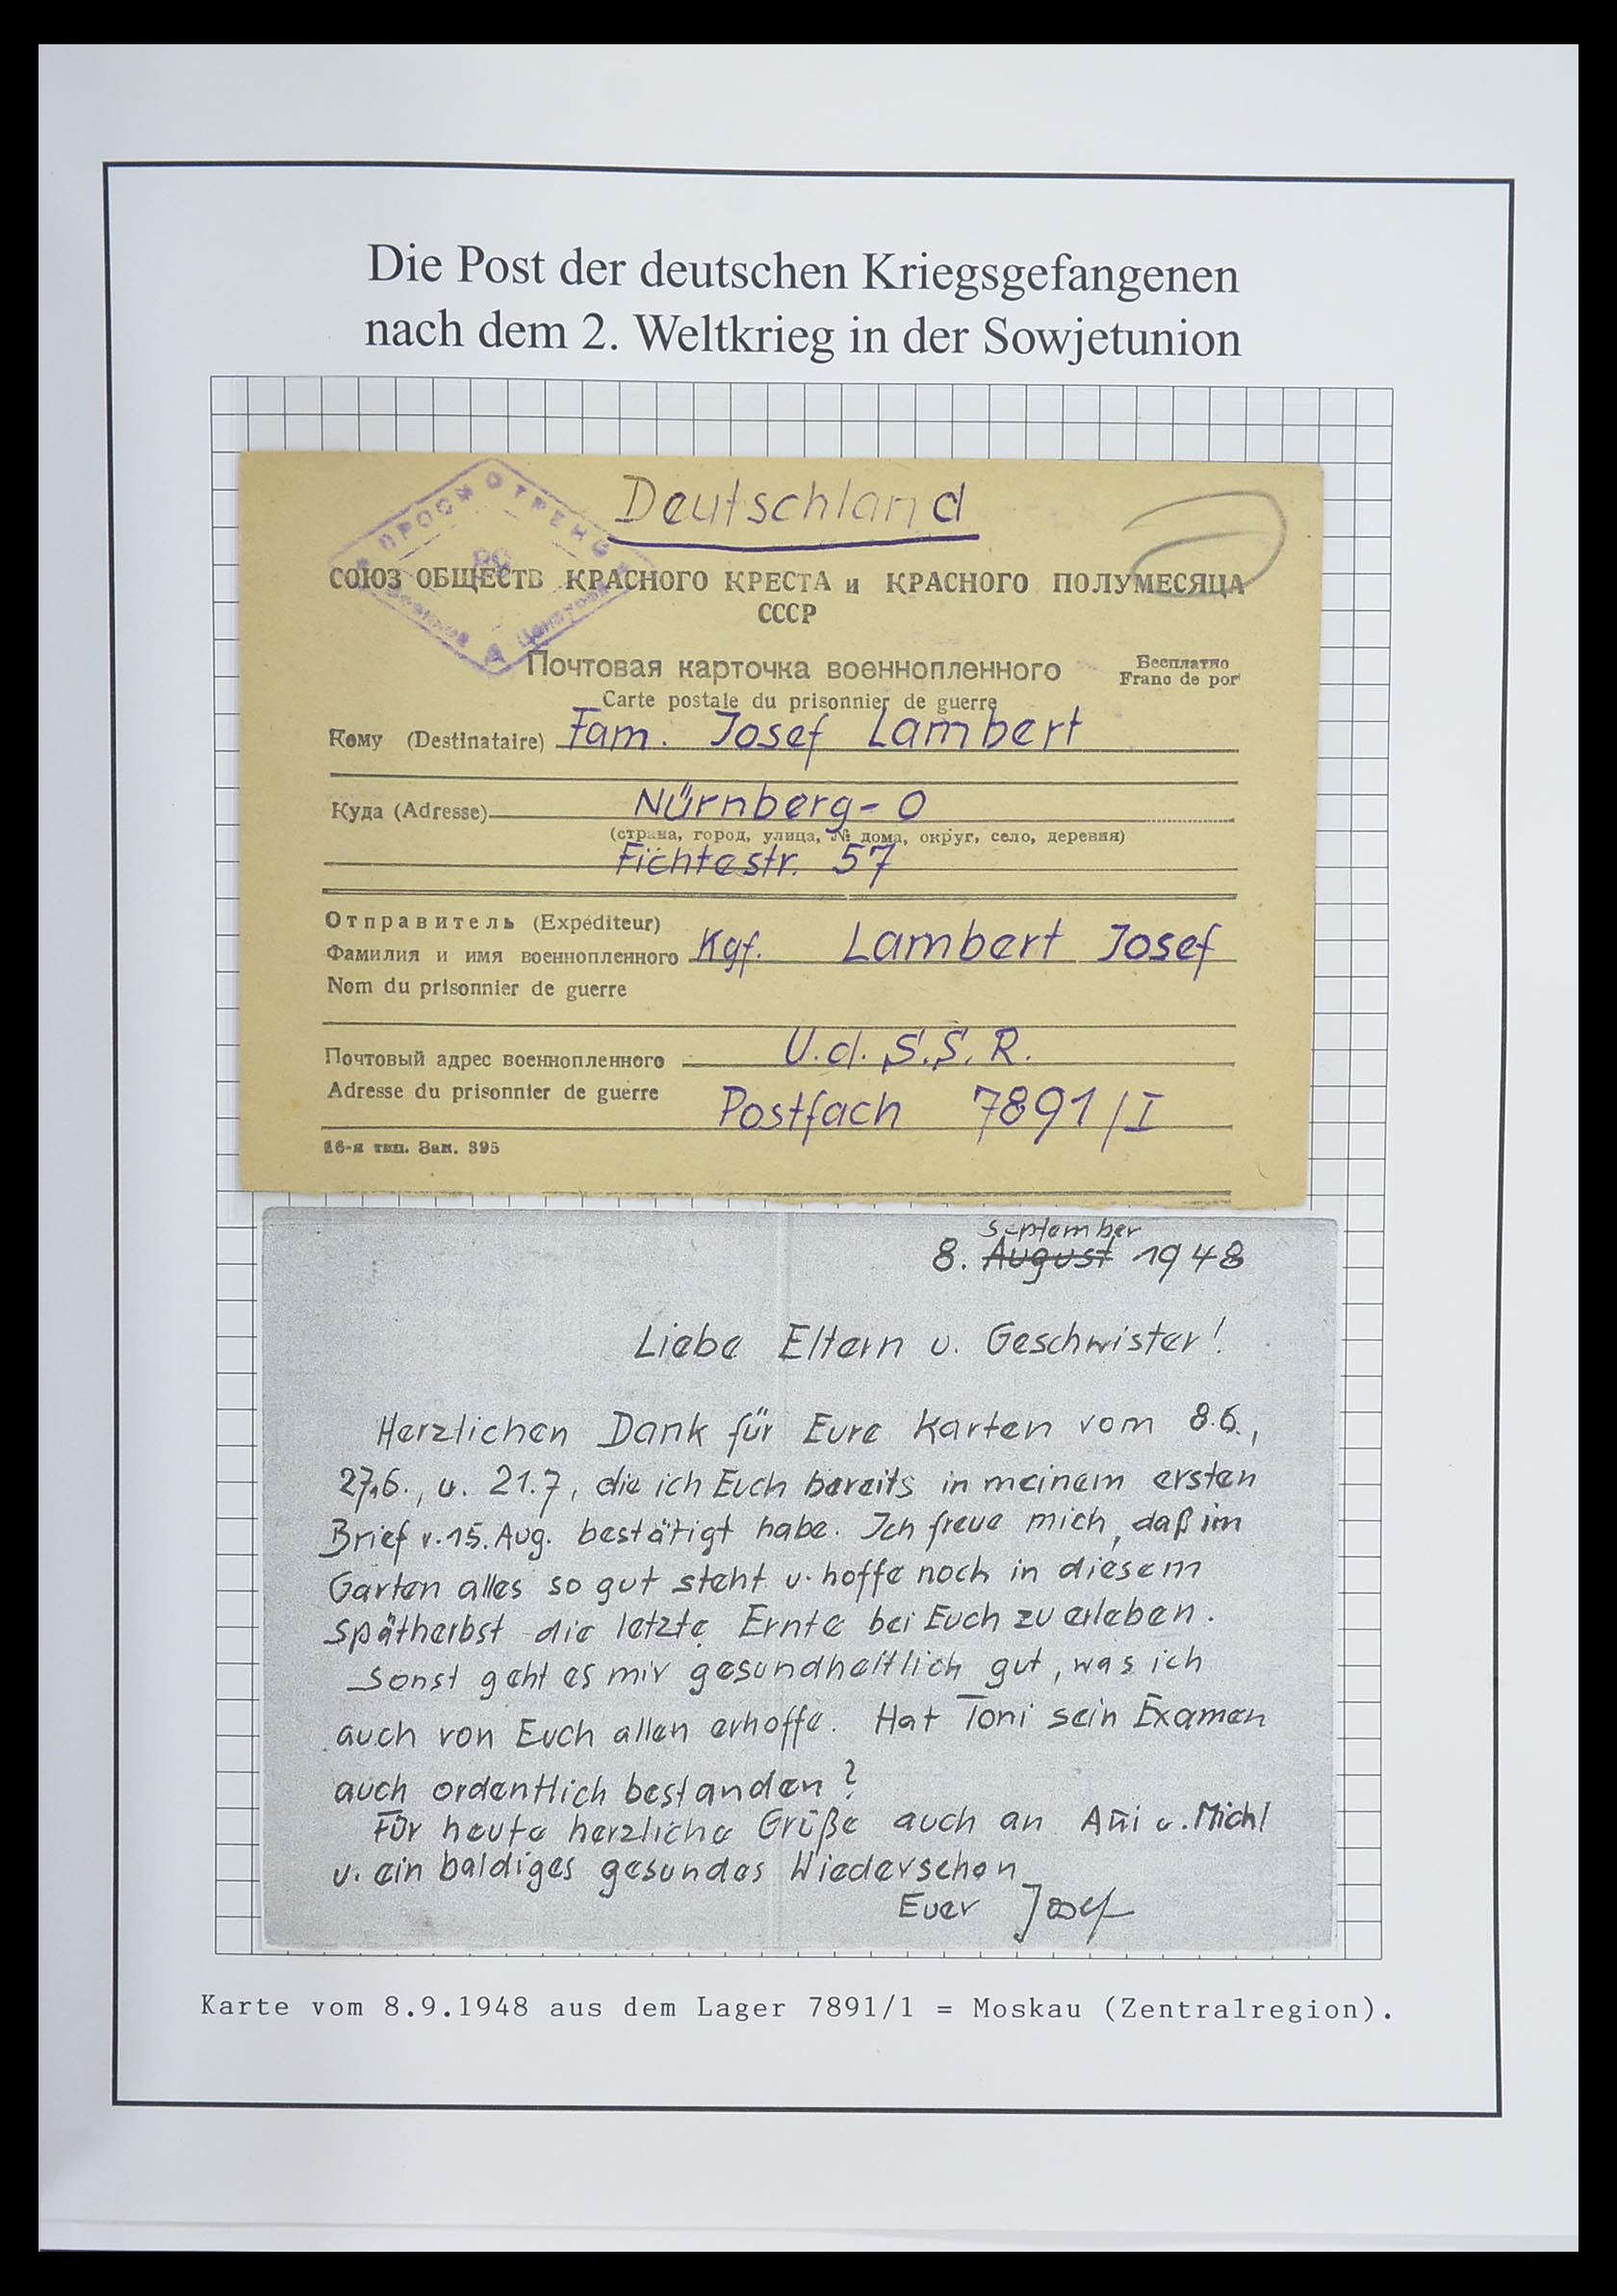 Die Post der deutschen Kriegsgefangenen
nach dem 2. Weltkrieg in der Sowjetunion
Deutschland
ПРОСМОТРЕНО
Военной Цензурой
СОЮЗ ОБЩЕСТВ КРАСНОГО КРЕСТА и КРАСНОГО ПОЛУМЕСЯЦА
СССР
Почтовая карточка военнопленного
Бесплатно
Franc de port
Carte postale du prisonnier de guerre
Кому (Destinataire) Fam. Josef Lambert
Куда (Adresse) Nürnberg-O
(страна, город, улица, № дома, округ, село, деревня)
Fichtestr. 57
Отправитель (Expéditeur)
Фамилия и имя военнопленного Kgf. Lambert Josef
Nom du prisonnier de guerre
Почтовый адрес военнопленного U.d.S.S.R.
Adresse du prisonnier de guerre Postfach 7891/I
16-я тип. Зак. 395
September
8. August 1948
Liebe Eltern u. Geschwister!
Herzlichen Dank für Eure Karten vom 8.6.,
27.6., u. 21.7, die ich Euch bereits in meinem ersten
Brief v. 15. Aug. bestätigt habe. Ich freue mich, daß im
Garten alles so gut steht u. hoffe noch in diesem
Spätherbst die letzte Ernte bei Euch zu erleben.
Sonst geht es mir gesundheitlich gut, was ich
auch von Euch allen erhoffe. Hat Toni sein Examen
auch ordentlich bestanden?
Für heute herzliche Grüße auch an Ani u. Michl
u. ein baldiges gesundes Wiedersehen
Euer Josef
Karte vom 8.9.1948 aus dem Lager 7891/1 = Moskau (Zentralregion).